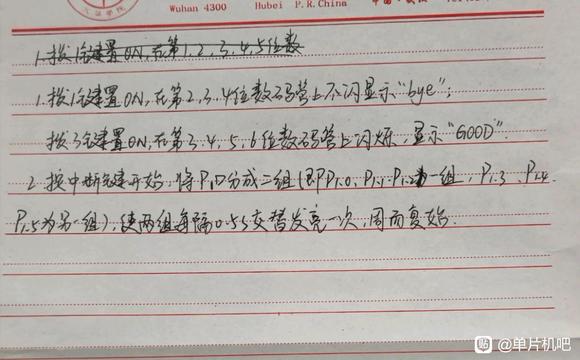 Wuhan 4300 Hubei P.R.China
1.拨1键置ON,在第1.2.3.4.5位数
1.拨1键置ON,在第2.3.4位数码管上不闪显示“bye”;
拨3键置ON,在第3.4.5.6位数码管上闪烁,显示“GOOD”.
2.按中断键开始,将P1口分成二组(即P1.0、P1.1.P1.2为一组,P1.3、P1.4
P1.5为另一组),使两组每隔0.5s交替发亮一次,周而复始.
贴 @单片机吧